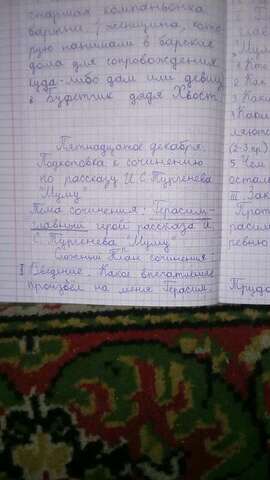 старшая компаньонка
барыни. / женщина, кото-
рую нанимали в барские
дома для сопровождения
куда-либо дам или девиц
в Буфетчик дядя Хвост.
Пятнадцатое декабря.
Подготовка к сочинению
по рассказу И.С.Тургенева
"Муму".
Тема сочинения: Герасим-
главный герой рассказа И.
С. Тургенева "Муму"
Сложный План сочинения:
I Введение. Какое впечатление
произвёл на меня Герасим.
II
глав
"Мум
1. Кто
2. Как
3. Каки
4 Каки
ляют
(2-3 пр)
5 Чем
остал
III Зак
Прот
расим
ревню
Прудо